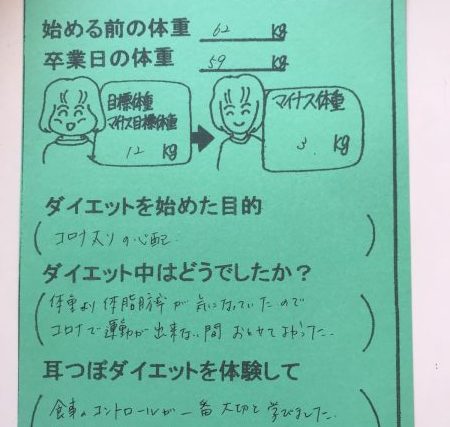 始める前の体重 62 kg
卒業日の体重 59 kg
目標体重
マイナス目標体重
12 kg
マイナス体重
3. kg
ダイエットを始めた目的
コロナ太りの心配
ダイエット中はどうでしたか？
体重より体脂肪率が気になっていたので
コロナで運動が出来ない間おとせてよかった.
耳つぼダイエットを体験して
食事のコントロールが一番大切と学びました.